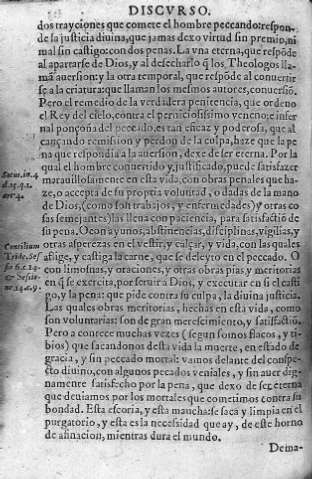 DISCVRSO.
dos trayciones que comete el hombre peccando: respon-
de la justicia diuina, que jamas dexo virtud sin premio, ni
mal sin castigo: con dos penas. La vna eterna, que respōde
al apartarse de Dios, y al desecharlo q̃ los Theologos lla-
mã auersion: y la otra temporal, que respōde al conuertir
se a la criatura: que llaman los mesmos autores, conuersiō.
Pero el remedio de la verdadera penitencia, que ordeno
el Rey del cielo, contra el perniciosissimo veneno: e infer
nal ponçoña del peccado, es tan eficaz y poderosa, que al
cançando remission y perdon de la culpa, haze que la pe
na que respondia a la auersion, dexe de ser eterna. Por la
qual el hombre conuertido, y justificado, puede satisfazer
Sotus. in. 4
marauillosamente en esta vida, con obras penales que ha-
d. 15. q. 1.
ze, o accepta de su propria voluntad, o dadas de la mano
art. 4.
de Dios, (como son trabajos, y enfermedades) y otras co
sas semejantes) las lleua con paciencia, para satisfactiō de
su pena. O con ayunos, abstinencias, disciplinas, vigilias, y
Concilium
otras asperezas en el vestir, y calçar, y vida, con las quales
Tride. Ses
aflige, y castiga la carne, que se deleyto en el peccado. O
sio 6. c. 14.
con limosnas, y oraciones, y otras obras pias, y meritorias
& Sessio-
en q̃ se exercita, por seruir a Dios, y executar en si el casti
ne. 14. c. 9.
go, y la pena: que pide contra su culpa, la diuina justicia.
Las quales obras meritorias, hechas en esta vida, como
son voluntarias: son de gran merescimiento, y satisfactiō.
Pero a conecer muchas vezes (segun somos flacos, y ti-
bios) que sacandonos desta vida la muerte, en estado de
gracia, y sin peccado mortal: vamos delante del conspe-
cto diuino, con algunos pecados veniales, y sin auer dig-
namente satisfecho por la pena, que dexo de ser eterna
que deuiamos por los mortales que cometimos contra su
bondad. Esta escoria, y esta mancha: se saca y limpia en el
purgatorio, y esta es la necessidad que ay, de este horno
de afinacion, mientras dura el mundo.
Dema-